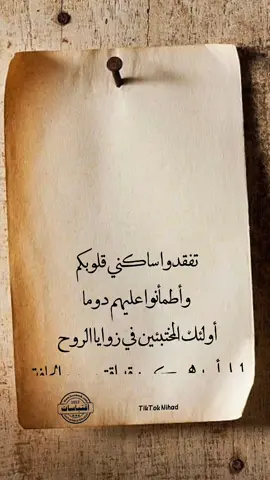 تفقدوا ساكني قلوبكم
وأطمأنوا عليهم دوما
أولئك المختبئين في زوايا الروح
اقتباسات
TikTok Nihad